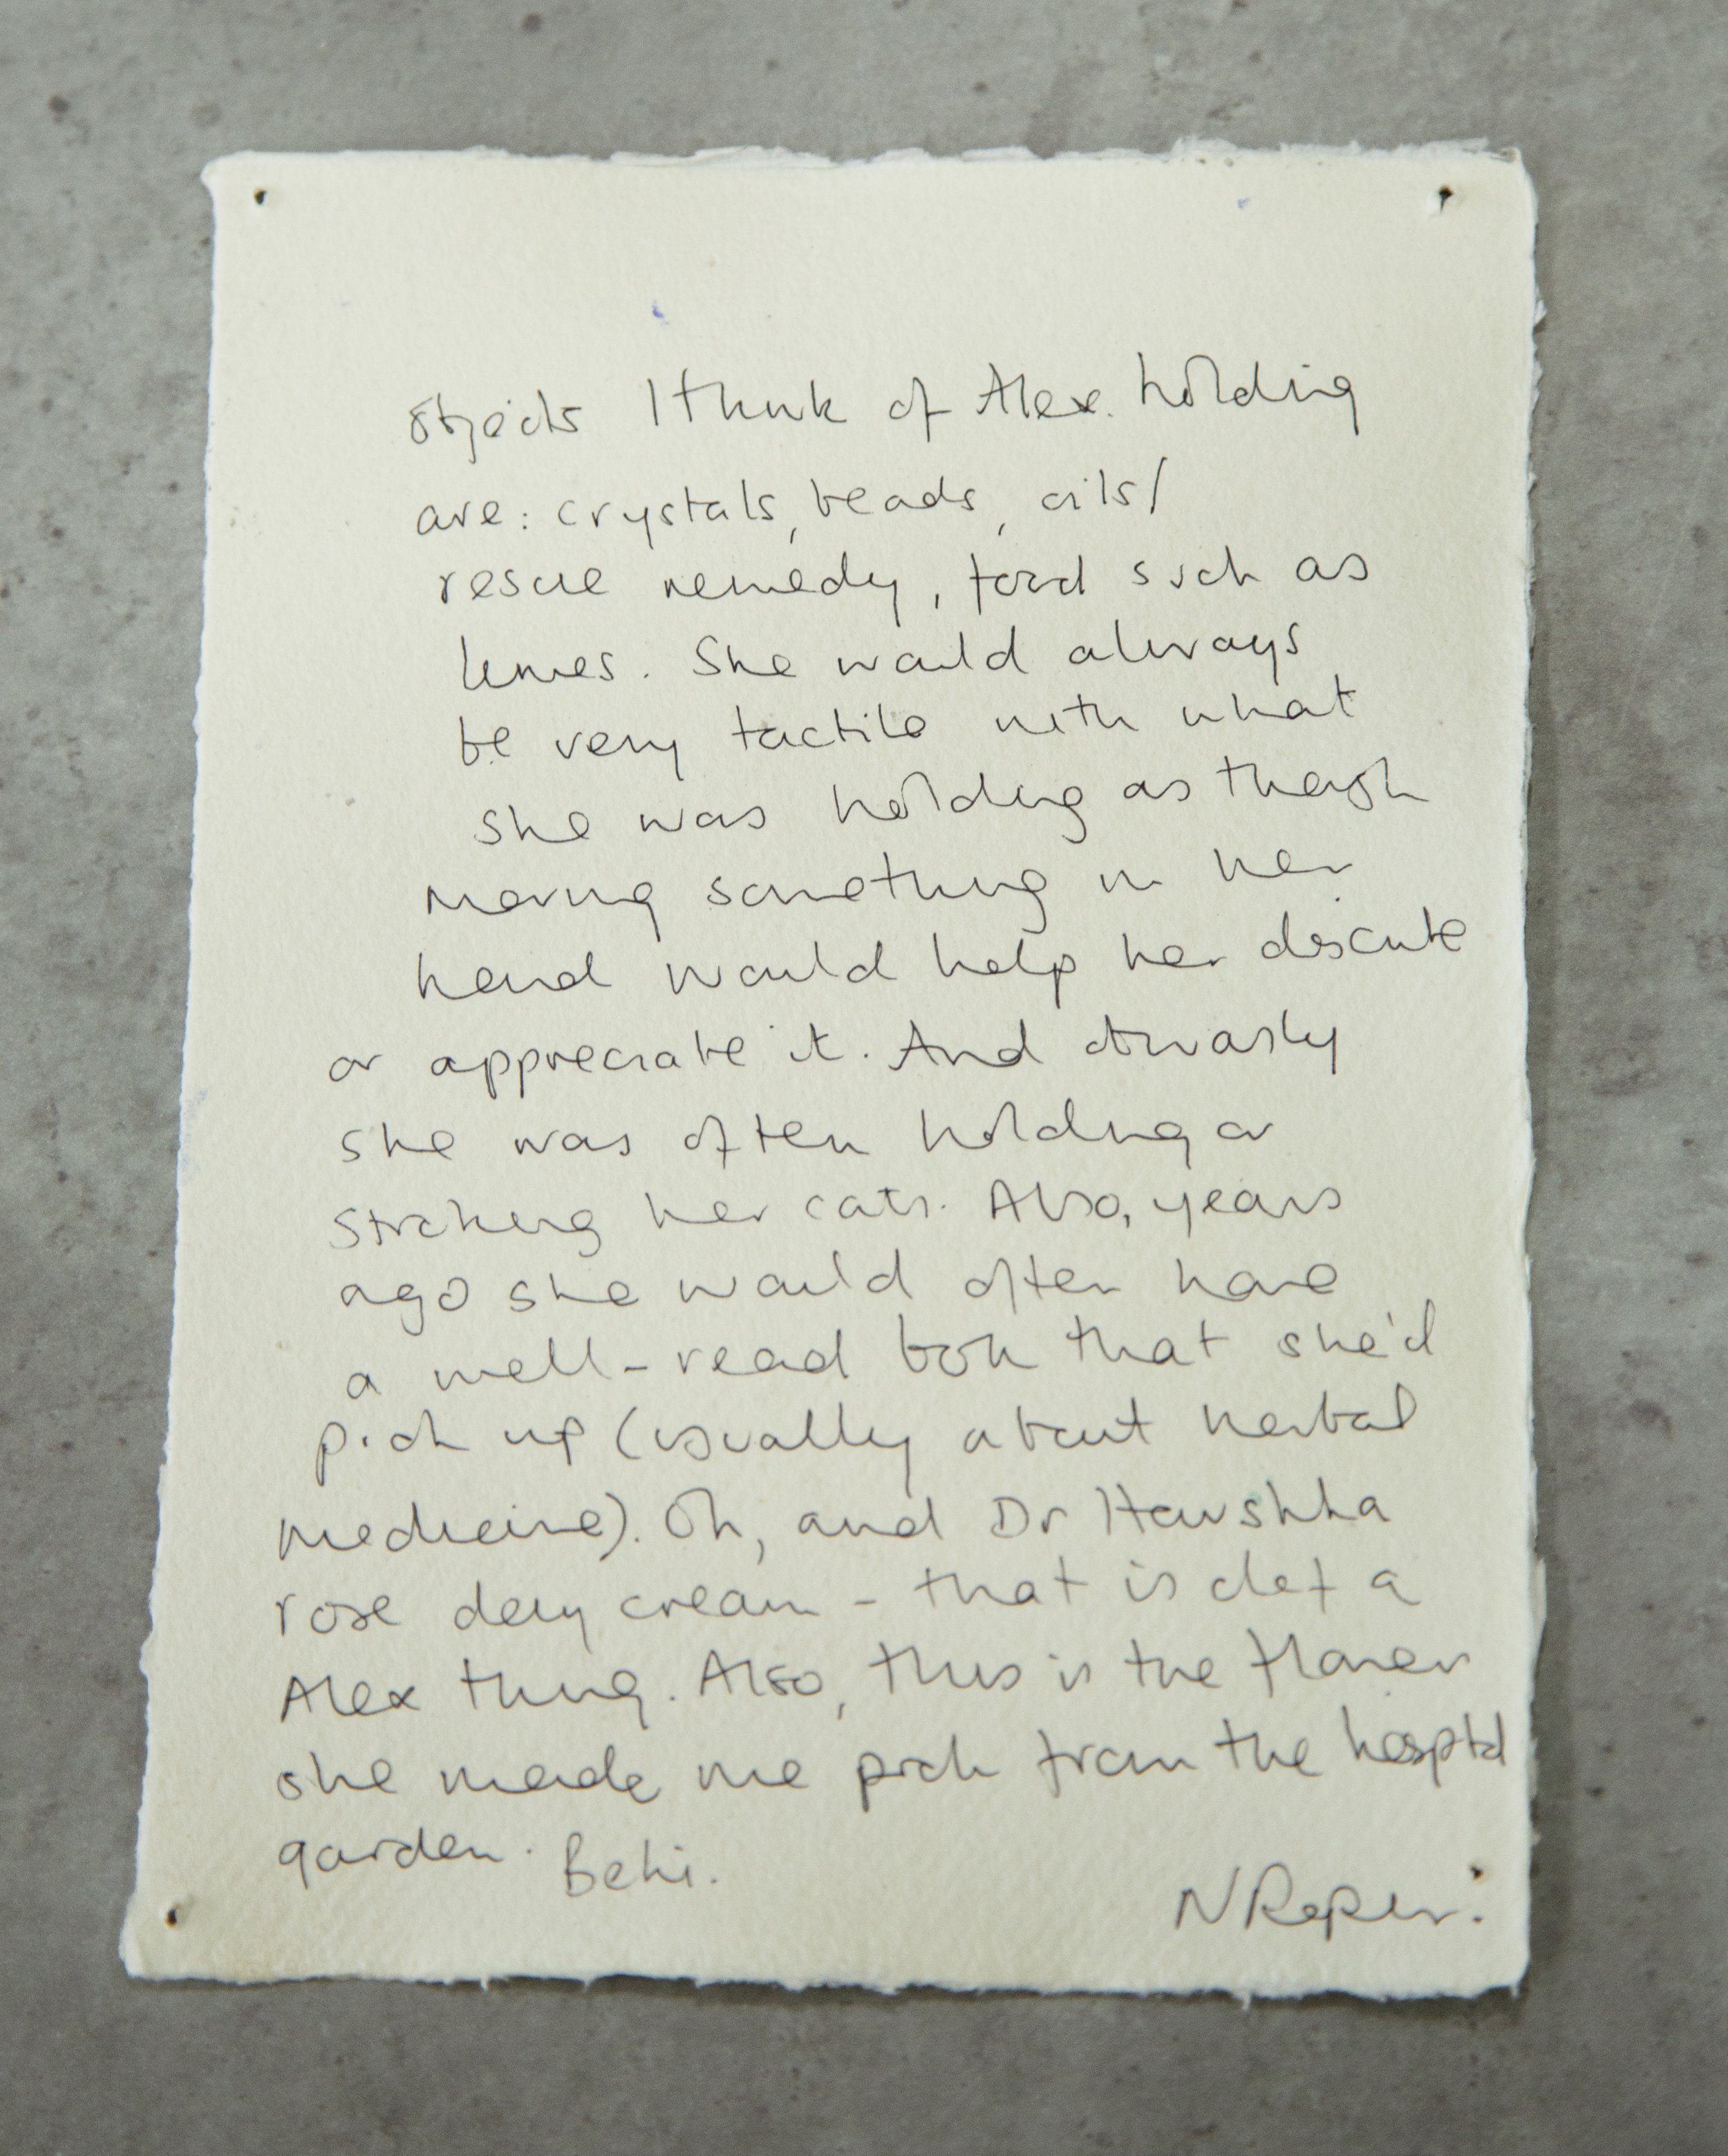 objects I think of Alex holding
are: crystals, beads, oils/
rescue remedy, food such as
limes. She would always
be very tactile with what
she was holding as though
moving something in her
hand would help her
or appreciate it. And obviously
she was often holding or
stroking her cats. Also, years
ago she would often have
a well-read book that she'd
pick up (usually about herbal
medicine). Oh, and Dr Haushka
rose day cream - that is def a
Alex thing. Also, this is the flower
she made me pick from the hospital
garden.